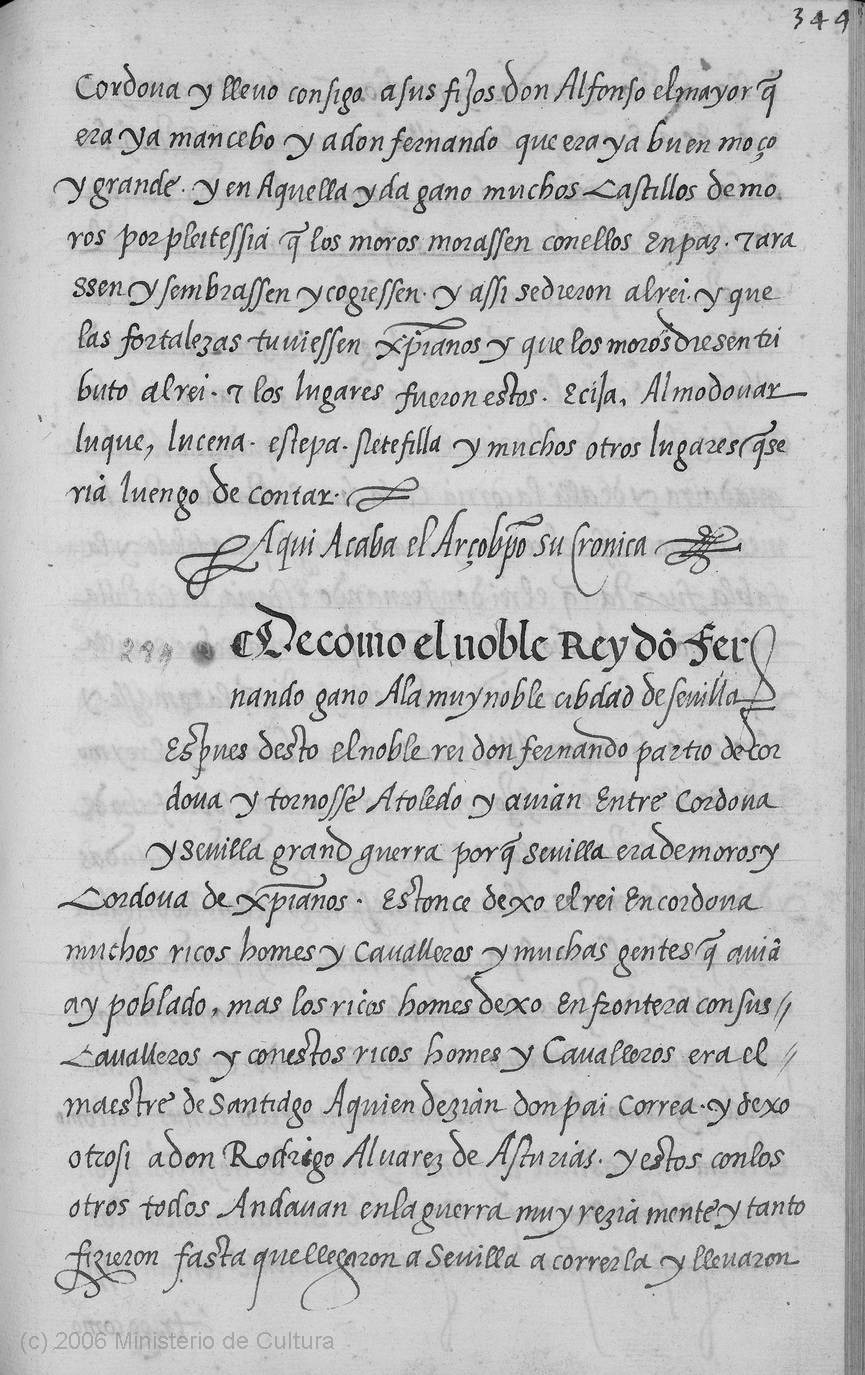 344
Cordova y llevo consigo a sus fijos don Alfonso el mayor q̃
era ya mancebo y a don fernando que era ya buen moço
y grande. y en Aquella yda gano muchos Castillos de mo
ros por pleitessia q̃ los moros morassen con ellos En paz. ⁊ ara
ssen y sembrassen y cogiessen. y assi se dieron al rei. y que
las fortalezas tuuiessen xp̃ianos y que los moros diesen tri
buto al rei. ⁊ los lugares fueron estos. Ecija, Almodouar
luque, lucena. estepa. sietefilla y muchos otros lugares q̃ se
riã luengo de contar.
Aqui Acaba el Arçobp̃o su Cronica
284
De como el noble Rey dõ Fer
nando gano A la muy noble cibdad de sevilla
Espues desto el noble rei don fernando partio de cor
dova y tornosse A toledo y avian Entre Cordova
y Sevilla grand guerra porq̃ Sevilla era de moros y
Cordova de xp̃ianos. Estonce dexo el rei En cordova
muchos ricos homes y Cavalleros y muchas gentes q̃ aviã
ay poblado, mas los ricos homes dexo En frontera con sus //
Cavalleros y con estos ricos homes y Cavalleros era el //
maestre de Santiago A quien dezian don pai Correa. y dexo
otrosi a don Rodrigo Alvarez de Asturias. y estos con los
otros todos Andavan en la guerra muy rezia mente y tanto
fizieron fasta que llegaron a Sevilla a correrla y llevaron
(c) 2006 Ministerio de Cultura